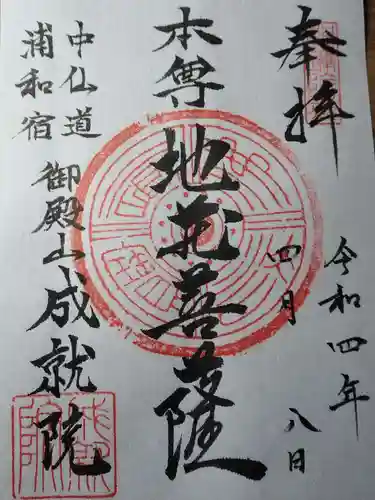 奉拝
令和四年
四月八日
本尊地蔵菩薩
中仙道
浦和宿
御殿山成就院